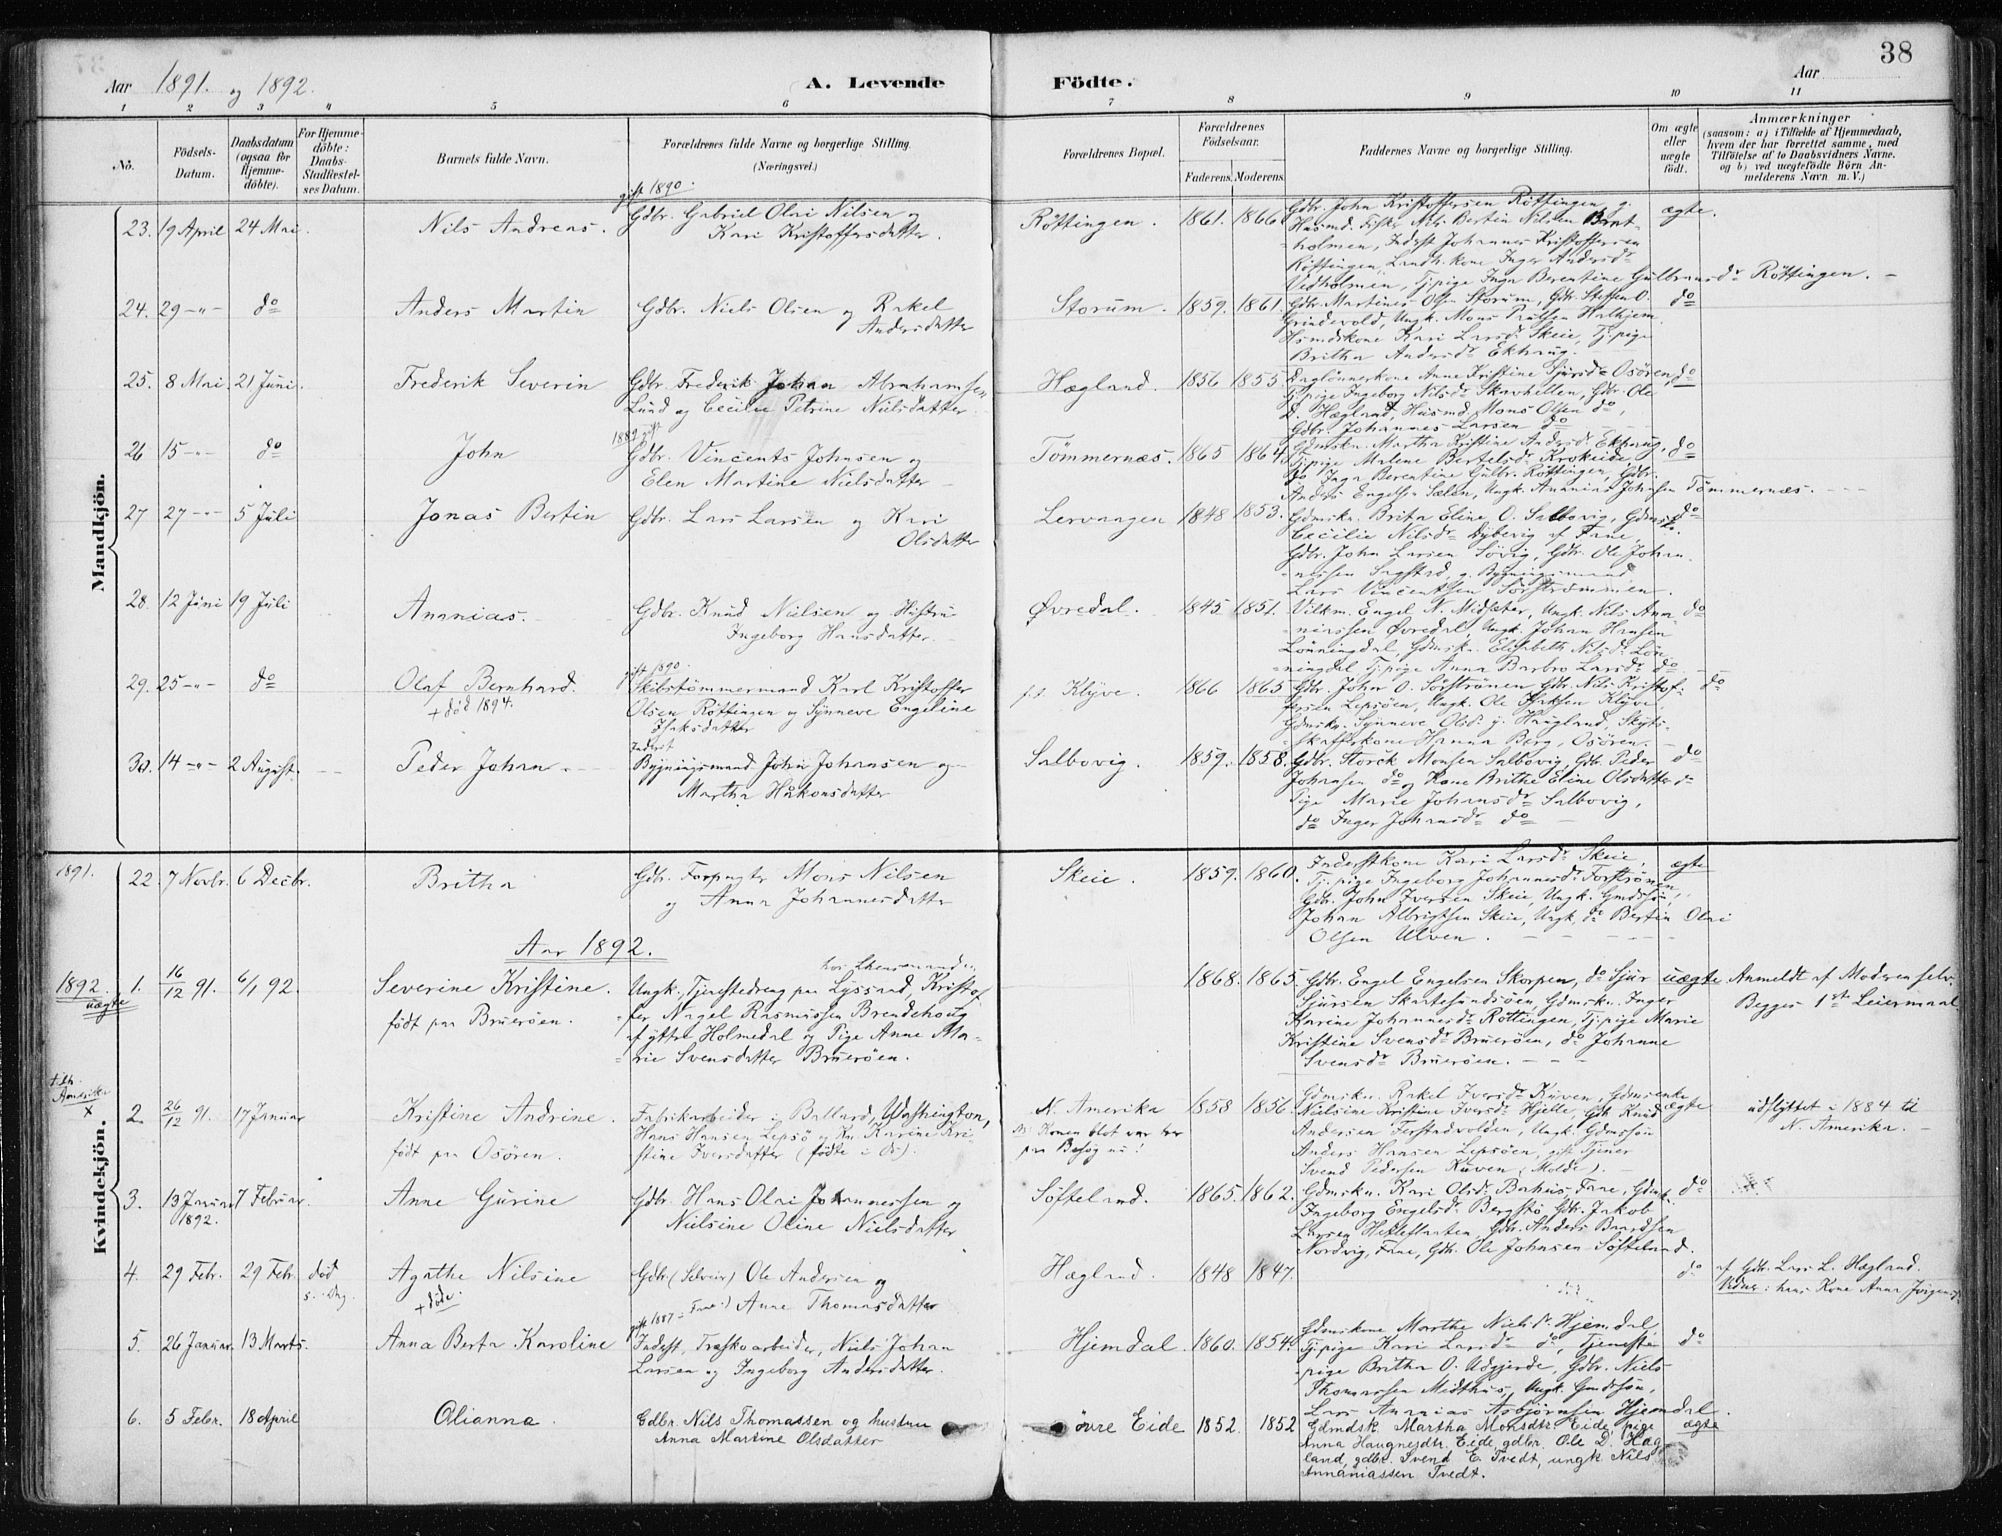 38
Aar 1891. og 1892.
A. Levende Födte.
Aar
1 2 3 4 5 6 7 8 9 10 11
No.
Födsels-Datum.
Daabsdatum (ogsaa for Hjemme-döbte).
For Hjemme-döbte: Daabs-Stadfæstel-ses Datum.
Barnets fulde Navn.
Forældrenes fulde Navne og borgerlige Stilling.
(Næringsvei.)
Forældrenes Bopæl.
Forældrenes Födselsaar.
Faderens. Moderens.
Faddernes Navne og borgerlige Stilling.
Om ægte eller uægte födt.
Anmærkninger
(saasom: a) i Tilfælde af Hjemmedaab, hvem der har forrettet samme, med Tilföielse af to Daabsvidners Navne. og b) ved uægtefödte Börn An-melderens Navn m. V.)
Mandkjön.
23. 19 April 24 Mai.
Nils Andreas.
gift 1890.
Gdbr. Gabriel Olai Nilsen og
Kari Kristoffersdatter.
Röttingen. 1861. 1866.
Gdbr. John Kristoffersen Röttingen, g.
Husmd. Fisker Nils Bertin Nilsen Brat-
holmen, Inderst Johannes Kristoffersen
Röttingen, Landh. kone Inger Andersdr
Vedholmen, Tj.pige Inga Berentine Gulbransdr Röttingen. -
ægte.
24. 29 -"- do
Anders Martin
Gdbr. Niels Olsen og Rakel
Andersdatter
Storum. 1859. 1861.
Gdbr. Martines Ols. Storum, Gdbr. Steffen O.
Grindevold, Ungk. Mons Halhjem.
Hsmdskone Kari Larsdr Skeie, Tj.pige
Britha Andersdr Ekhaug.
do
25. 8 Mai. 21 Juni.
Frederik Severin
Gdbr. Frederik Johan Abrahamsen
Lund og Cecilie Petrine Nielsdatter.
Hægland. 1856 1855
Daglönnerkone Anne Kristine Sjursdr Osören,
Tj.pige Ingeborg Nilsdr Skavhellen, Gdbr. Ole
D. Hægland, Husmd. Mons Olsen do,
Gdbr. Johannes Larsen do
do
26 15 -"- do
John
1889 gift
Gdbr. Vincents Johnsen og
Elen Martine Nielsdatter
Tömmernæs. 1865 1864.
Gdmskn. Martha Kristine Andersdr Ekhaug,
Tj.pige Malene Bertelsdr Krokeide
do Inga Berentine Gulbr. Röttingen, Gdbr.
Anders Engelsen Sælen, Ungk. Ananias Johnsen Tömmernæs. - - -
do
27 27 -"- 5 Juli
Jonas Bertin
Gdbr. Lars Larsen og Kari
Olsdatter
Lervaagen 1848 1853.
Gdmskn. Brita Eline O. Salbovig, Gdmsk.
Cecilie Nilsdr Dybevig af Fane,
Gdbr. John Larsen Sövig, Gdbr. Ole Johan-
nessen Sagstad, g. Bygningsmand
Lars Vincentsen Sörströmmen.
do
28. 12 Juni 19 Juli
Ananias.
Gdbr. Knud Nielsen og Hustru
Ingeborg Hansdatter.
Øvredal. 1845 1851.
Engel N. Midsæter, Ungk. Nils Ana-
niassen Øvredal, Ungk. Johan Hansen
Lönningdal, Gdmskn. Elisabeth Nilsdr Lön-
ningdal, Tj.pige Anna Barbro Larsdr do
do
29. 25 -"- do
Olaf Bernhard.
+ död 1894.
gift 1890.
Skibstömmermand Karl Kristoffer
Olsen Röttingen og Synneve Engeline
Isaksdatter
p.t. Klyve. 1866 1865
Gdbr. John O. Sörströnen, Gdbr. Nils Kristof-
fersen Lepsöen, Ungk. Ole Isaksen Klyve,
Gdmskn. Synneve Olsdr Haugland, Skyds-
skafferkone Hanna Berg, Osören. -
do
30. 14 -"- 2 August.
Peder Johan
Inderst
Bygningsmand John Johansen og
Martha Håkonsdatter
Salbovig. 1859. 1858.
Gdbr. Storck Monsen Salbovig, Gdbr. Peder
Johansen do og Kone Brithe Eline Olsdatter do
Pige Marie Johansdr Salbovig,
do Inger Johansdr do
do
Kvindekjön.
1891.
22. 7 Novbr. 6 Decbr.
Britha
Gdbr. Forpagter Mons Nilsen
og Anna Johannesdatter
Skeie. 1859. 1860.
Inderstkone Kari Larsdr Skeie,
Tj.pige Ingeborg Johannesdr Forströnen,
Gdbr. John Iversen Skeie, Ungk. Gmdssön,
Johan Albrigtsen Skeie, Ungk. do Bertin Olai
Olsen Ulven.
ægte
Aar 1892.
1892. uægte
1. 16/12 91. 6/1 92.
Severine Kristine.
födt paa Bruerøen.
hos Lhensmanden
Ungk., Tjenestedreng paa Lyssand, Kristof-
fer Nagel Rasmussen Brendehoug
af ytre Holmedal og Pige Anne Ma-
rie Svensdatter Bruerøen.
1868. 1865.
Gdbr. Engel Engelsen Skorpen, do Sjur
Sjursen Skatesundsöen, Gdmskn. Inger
Karine Johannesdr Röttingen, Tj.pige Marie
Kristine Svensdr Bruerøen, do Johanne
Svensdr Bruerøen. - -
uægte
Anmeldt af Moderen selv.
Begges 1ste Leiermaal
tilh. Amerika x
2. 26/12 91. 17 Januar
Kristine Andrine.
födt paa Osören.
Fabrikarbeider i Ballard, Washington,
Hans Hansen Lepsö og Kn. Karine Kri-
stine Iversdatter (födte i Os).
N. Amerika
NB. Konen blot var her
paa Besög nu.
1858 1856.
Gdmskn. Rakel Iversdr Kuven, Gdmsenke
Nielsine Kristine Iversdr Hjelle, Gdbr. Knud
Andersen Ferstadvolden, Ungk. Gdmssön
Anders Hansen Lepsöen, gift Tjener
Svend Pedersen Kuven (Molde). -
ægte
udflyttet i 1884 til
N. Amerika. -
3. 13 Januar 1892. 7 Februar.
Anne Gurine
Gdbr. Hans Olai Johannessen og
Nielsine Oline Nielsdatter
Söfteland. 1865. 1862.
Gdmskn. Kari Olsdr Bahus, Fane, Gdmsk.
Ingeborg Engelsdr Bergstö, Gdbr. Jakob
Larsen Hetleflaaten, Gdbr. Anders Baardsen
Nordvig, Fane, Gdbr. Ole Johnsen Söfteland.
do
4. 29 Febr. 29 Febr. död s. Dag
Agathe Nilsine
+ döde.
Gdbr. (Selveier) Ole Andersen og
Anne Thomasdatter
Hægland. 1848 1847.
do
af Gdbr. Lars L. Hægland.
Vidner: hans Kone Anna
5. 26 Januar. 13 Marts.
Anna Berta Karoline
gift 1887 i Fane.
Inderst, Træskoarbeider, Niels Johan
Larsen og Ingeborg Andersdatter.
Hjemdal. 1860. 1854.
Gdmskone Marthe Nielsdr Hjemdal,
Tj.pige Kari Larsdr do, Tjeneste-
pige Britha O. Udgjerde, Gdbr. Niels
Thomassen Midthus, Ungk. Gmdssön,
Lars Ananias Asbjörnsen Hjemdal.
do
6. 5 Febr. 18 April
Olianna.
Gdbr. Nils Thomassen og hustru
Anna Martine Olsdatter
øvre Eide 1852. 1852
Gdmdsk. Martha Monsdtr. Eide, pige
Anna Haugnesdtr. Eide, gdbr. Ole D. Hæg-
land, gdbr. Svend E. Tvedt, ungk. Nils
Annaniassen Tvedt.
ægte